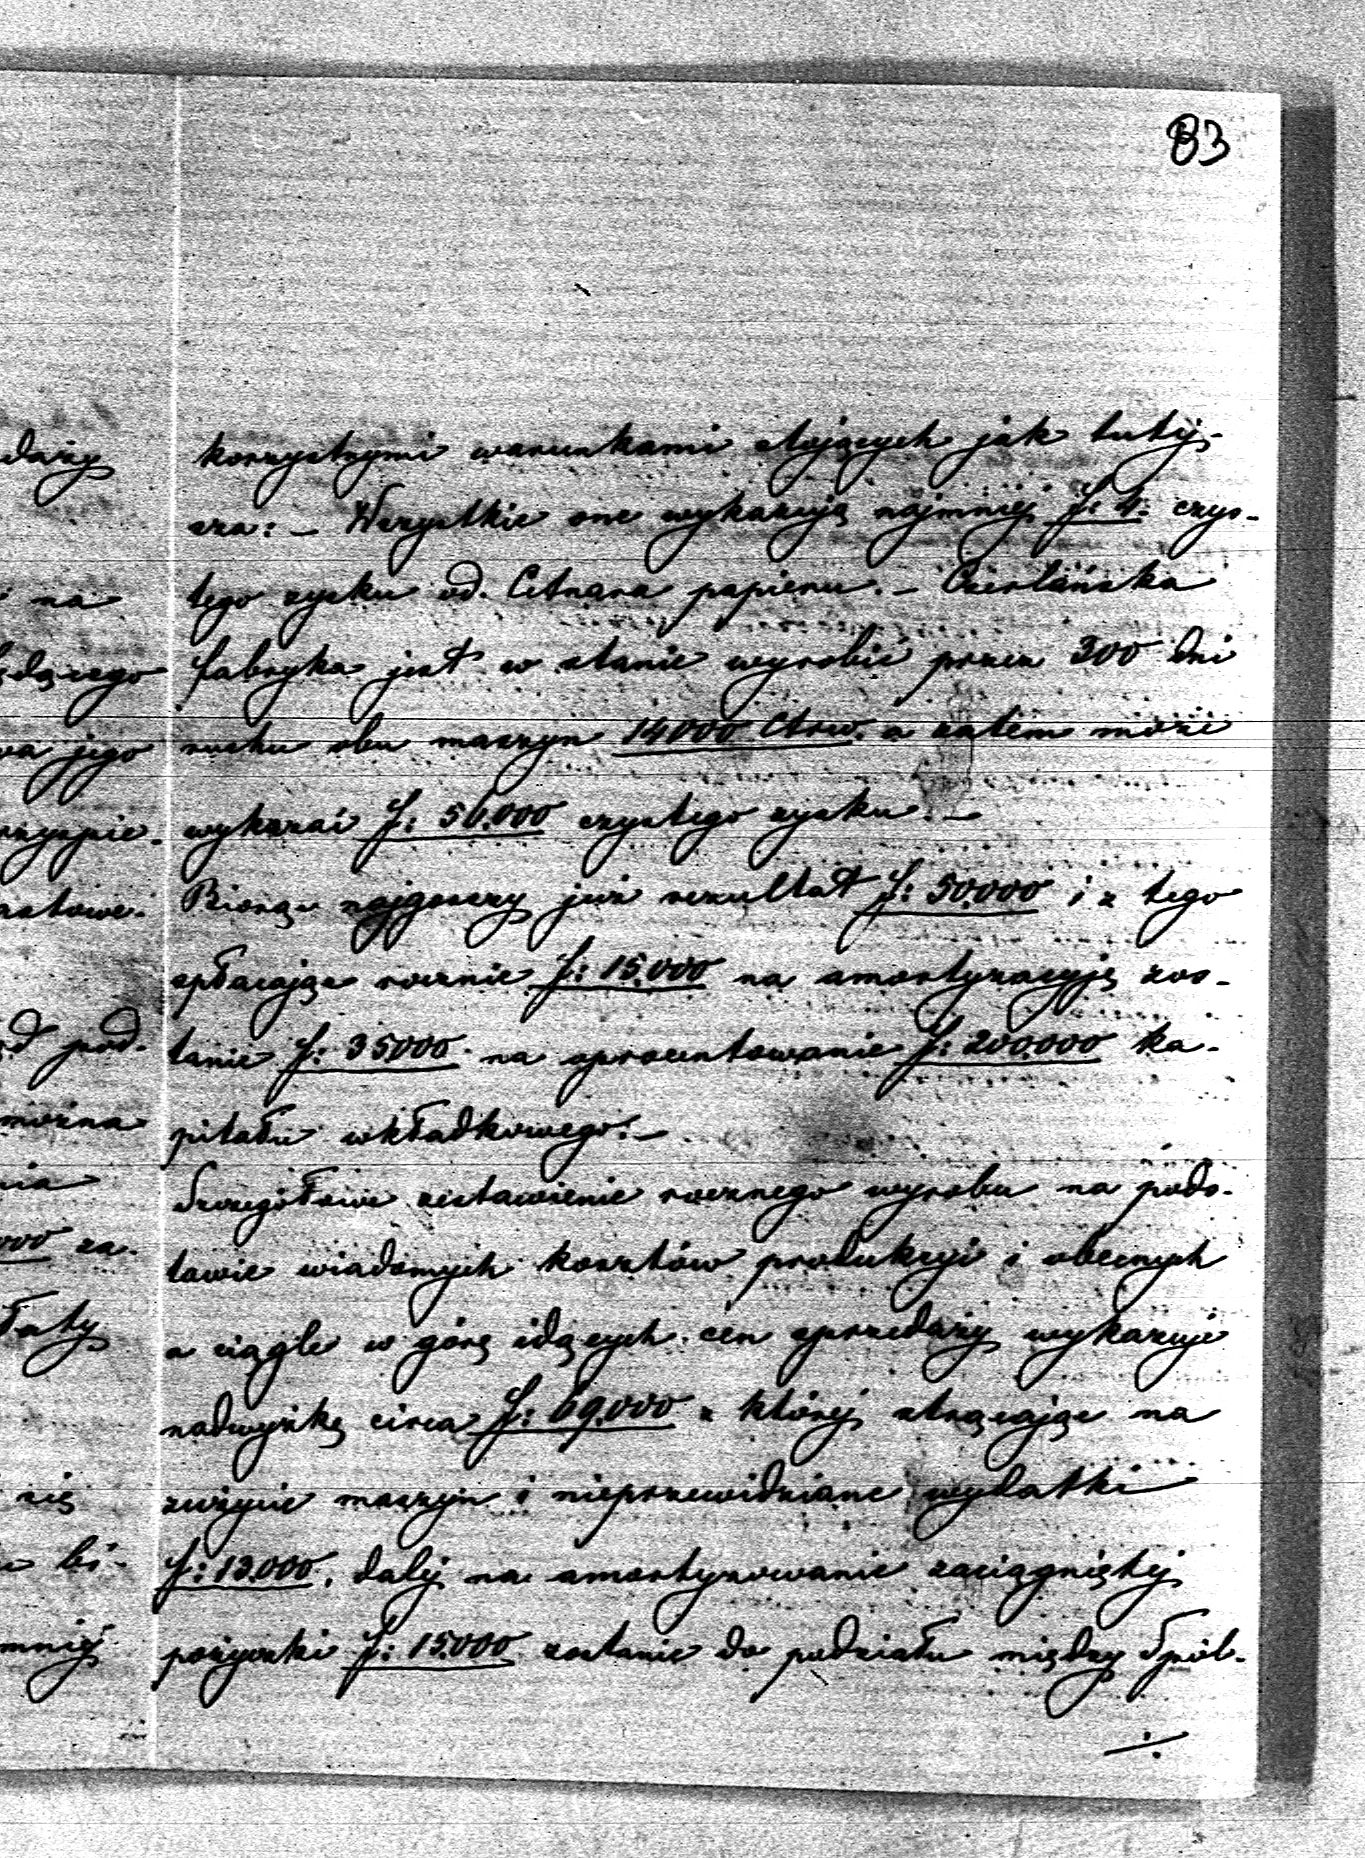 83
korzystnymi warunkami stojących jak tutej-
sza: – Wszystkie one wykazują najmniej f: 4. czys-
tego zysku od. Cetnara papieru. – Czerlańska
fabryka jest w stanie wyrobić przez 300 dni
ruchu obu maszyn 14000 Ctrw. a zatem może
wykazać f: 56.000 czystego zysku. –
Biorąc najgorszy już rezultat f: 50.000 i z tego
spłacając rocznie f: 15.000 na amortyzacyję zos-
tanie f: 35000 na oprocentowanie f: 200.000 ka-
pitału wkładkowego. –
Szczegółowe zestawienie rocznego wyrobu na pods-
tawie wiadomych kosztów produkcyi i obecnych
a ciągle w górę idących cen sprzedaży wykazuje
nadwyżkę circa f: 69.000 z której strącając na
zużycie maszyn i nieprzewidziane wydatki
f: 13.000, dalej na amortyzowanie zaciągniętej
pożyczki f: 15.000 zostanie do podziału między Spól-
./.
daży
na
będącego
jego
rzyspie-
astowe.
pod-
można
nia
000 za-
łaty
się
bi-
mniej